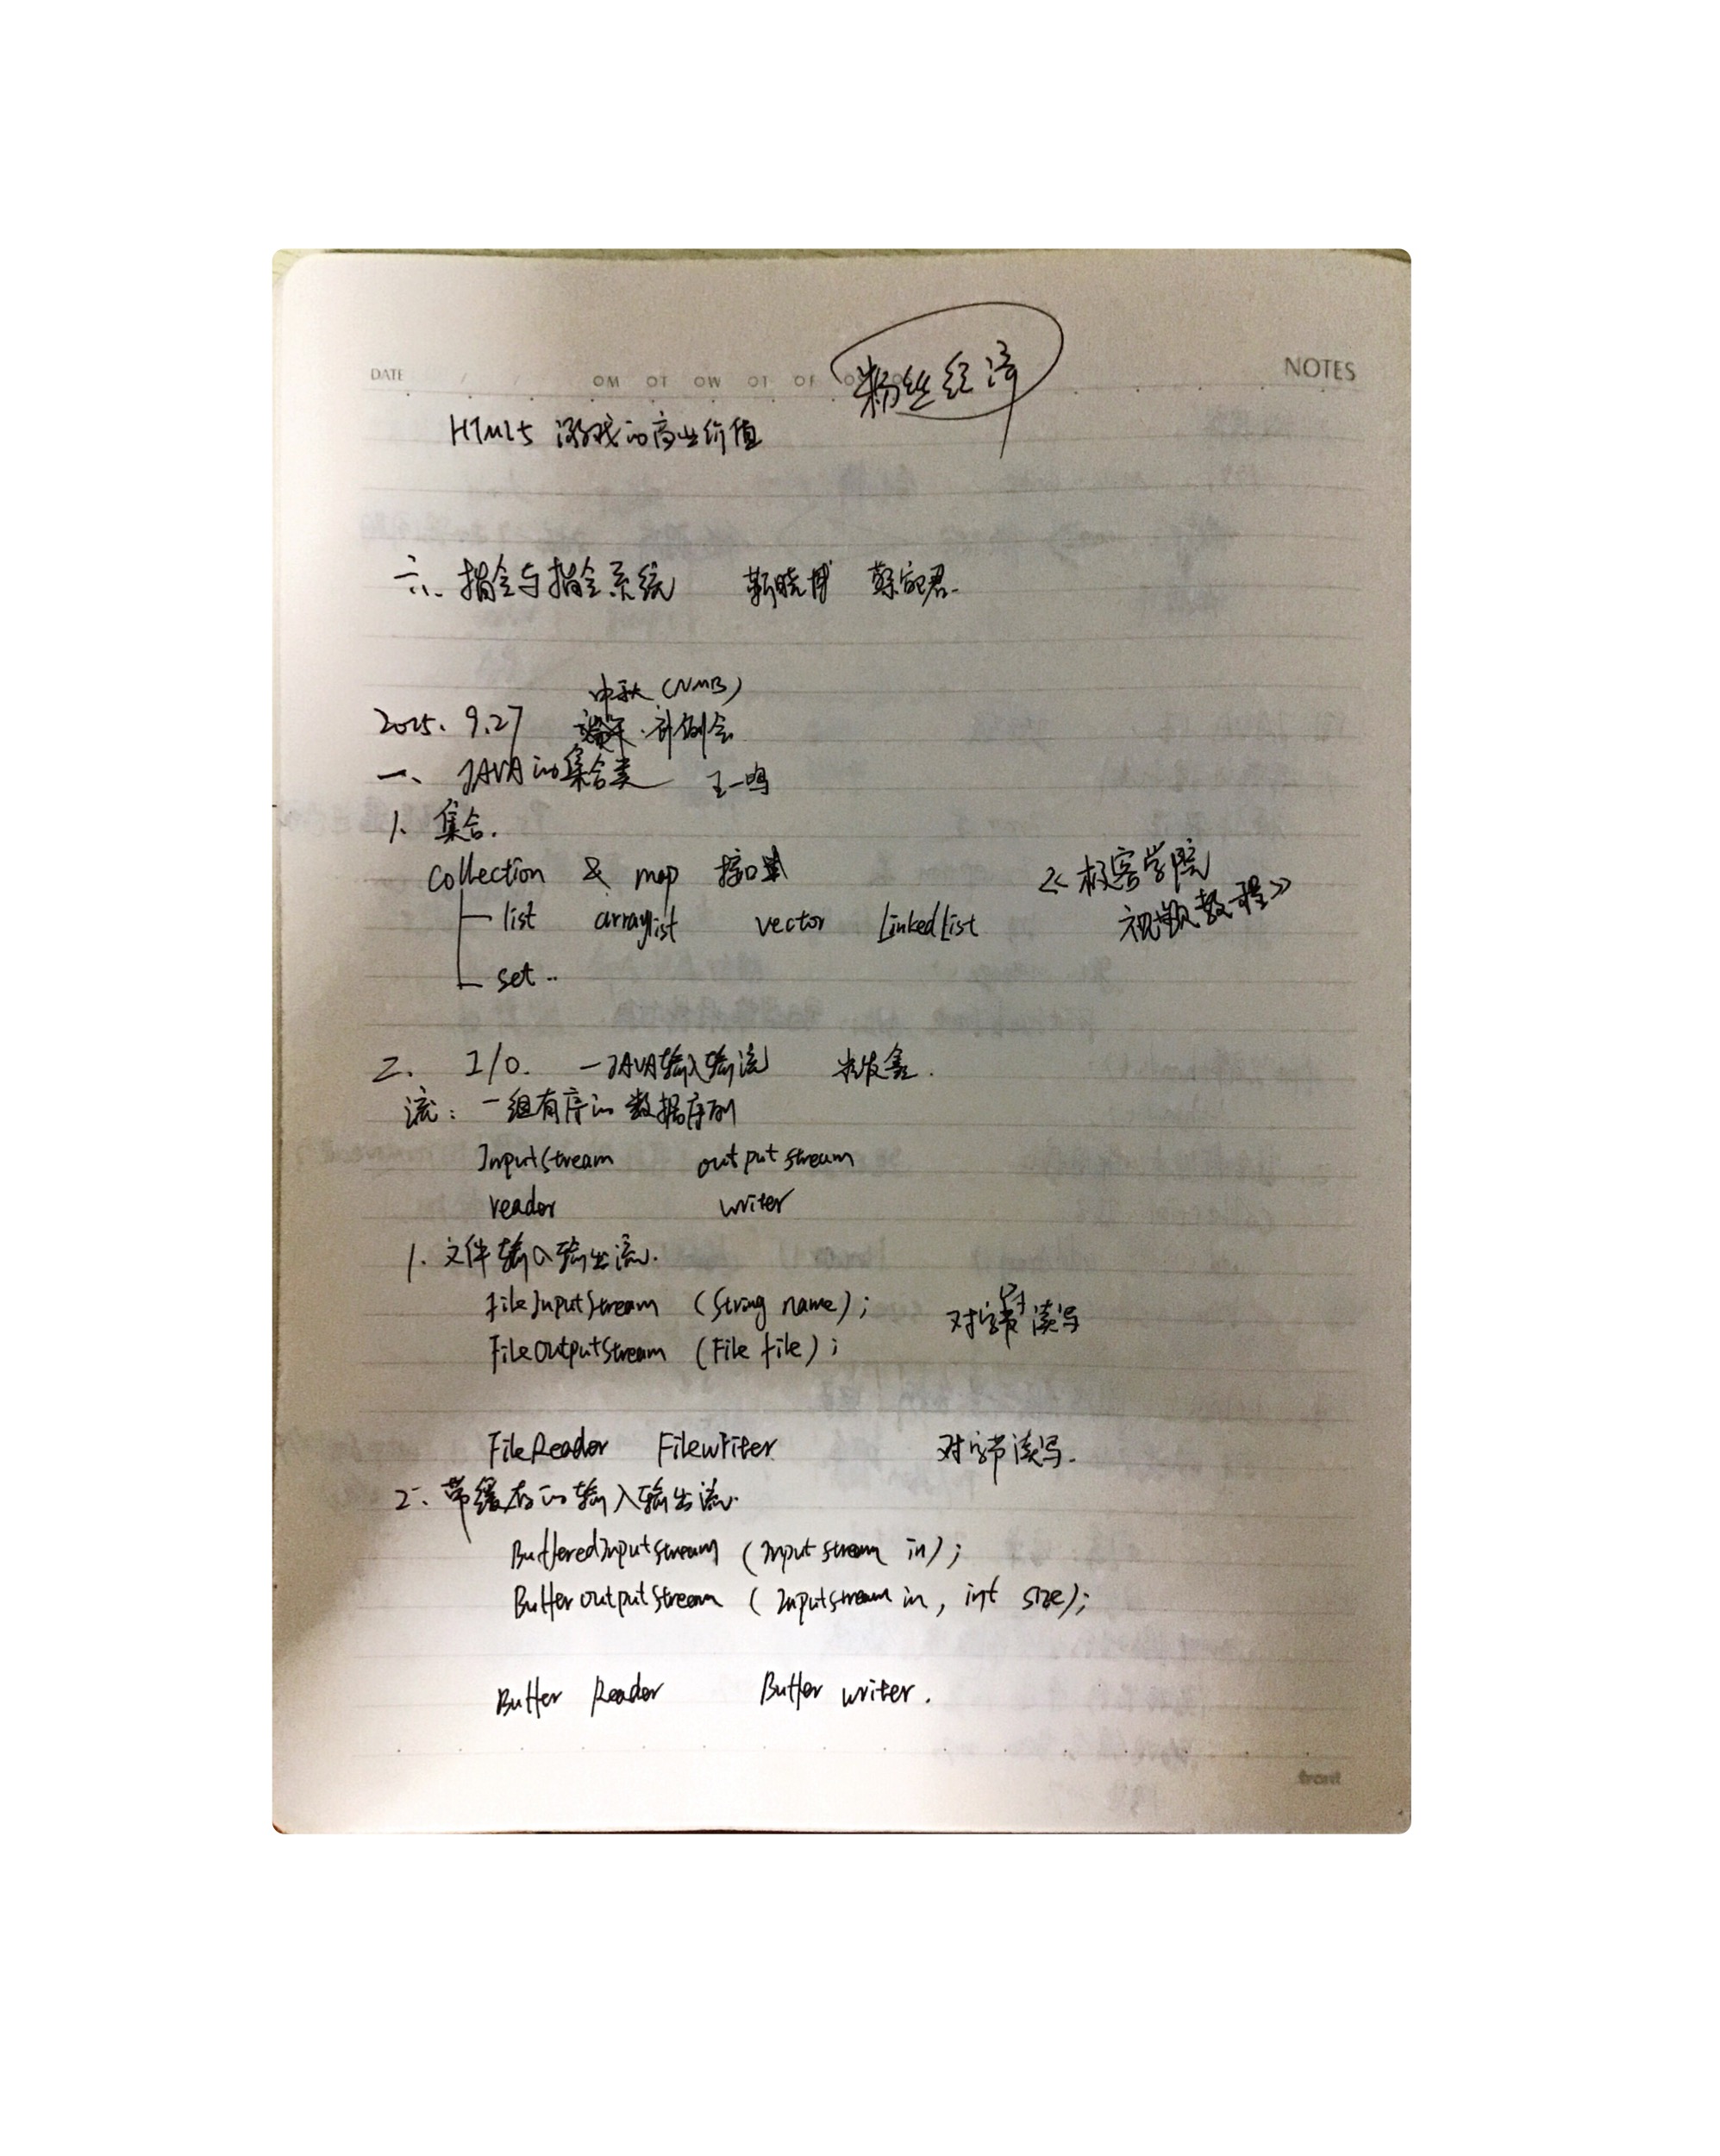 粉丝经济
DATE / / NOTES
HTML5 游戏的商业价值
六、指令与指令系统 靳晓博
中秋 (NMB)
2015. 9.27 例会
一、JAVA的集合类 王一鸣
1. 集合.
collection & map 接口
《极客学院
list arraylist vector LinkedList
视频教程》
set ..
二. I/O. —JAVA输入输流
流: 一组有序的数据序列
InputStream outputstream
reader writer
1. 文件输入输出流.
FileInputStream (String name);
对字节读写
FileOutputStream (File file);
FileReader FileWriter 对字节读写.
2. 带缓存的输入输出流.
BufferedInputStream (Inputstream in);
BufferoutputStream (Inputstream in, int size);
Buffer Reader Buffer writer.
front